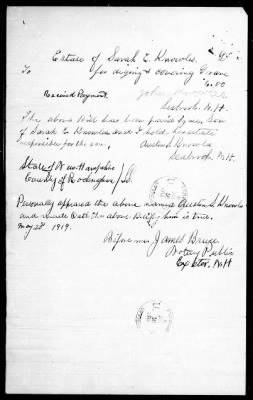 Estate of Sarah E. Knowles
To for diging & covering Grave
6.00
Received Payment.
John Knowles
Seabrook N.H.
The above bill has been paid by me, son
of Sarah E Knowles and I hold her estate
responsible for the sum.
Austin S. Knowles
Seabrook, N.H.
State of New Hampshire
County of Rockingham / SS.
Personally appeared the above named Austin S. Knowles
and made Oath the above Bill by him is true.
May 28 1919.
Before me James Brugg
Notary Public
Exeter, N.H